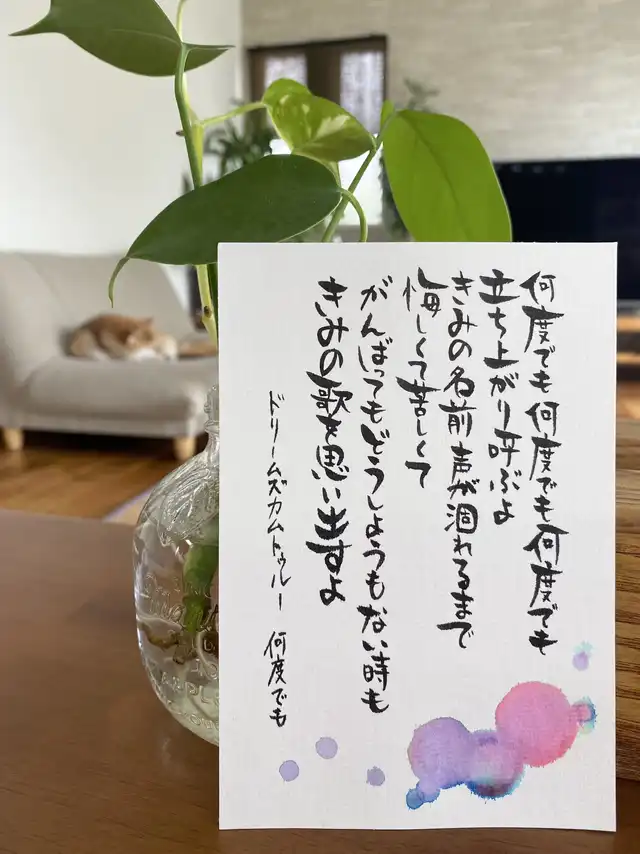 何度でも何度でも何度でも
立ち上がり呼ぶよ
きみの名前声が涸れるまで
悔しくて苦しくて
がんばってもどうしようもない時も
きみの歌を思い出すよ
ドリームズカムトゥルー 何度でも